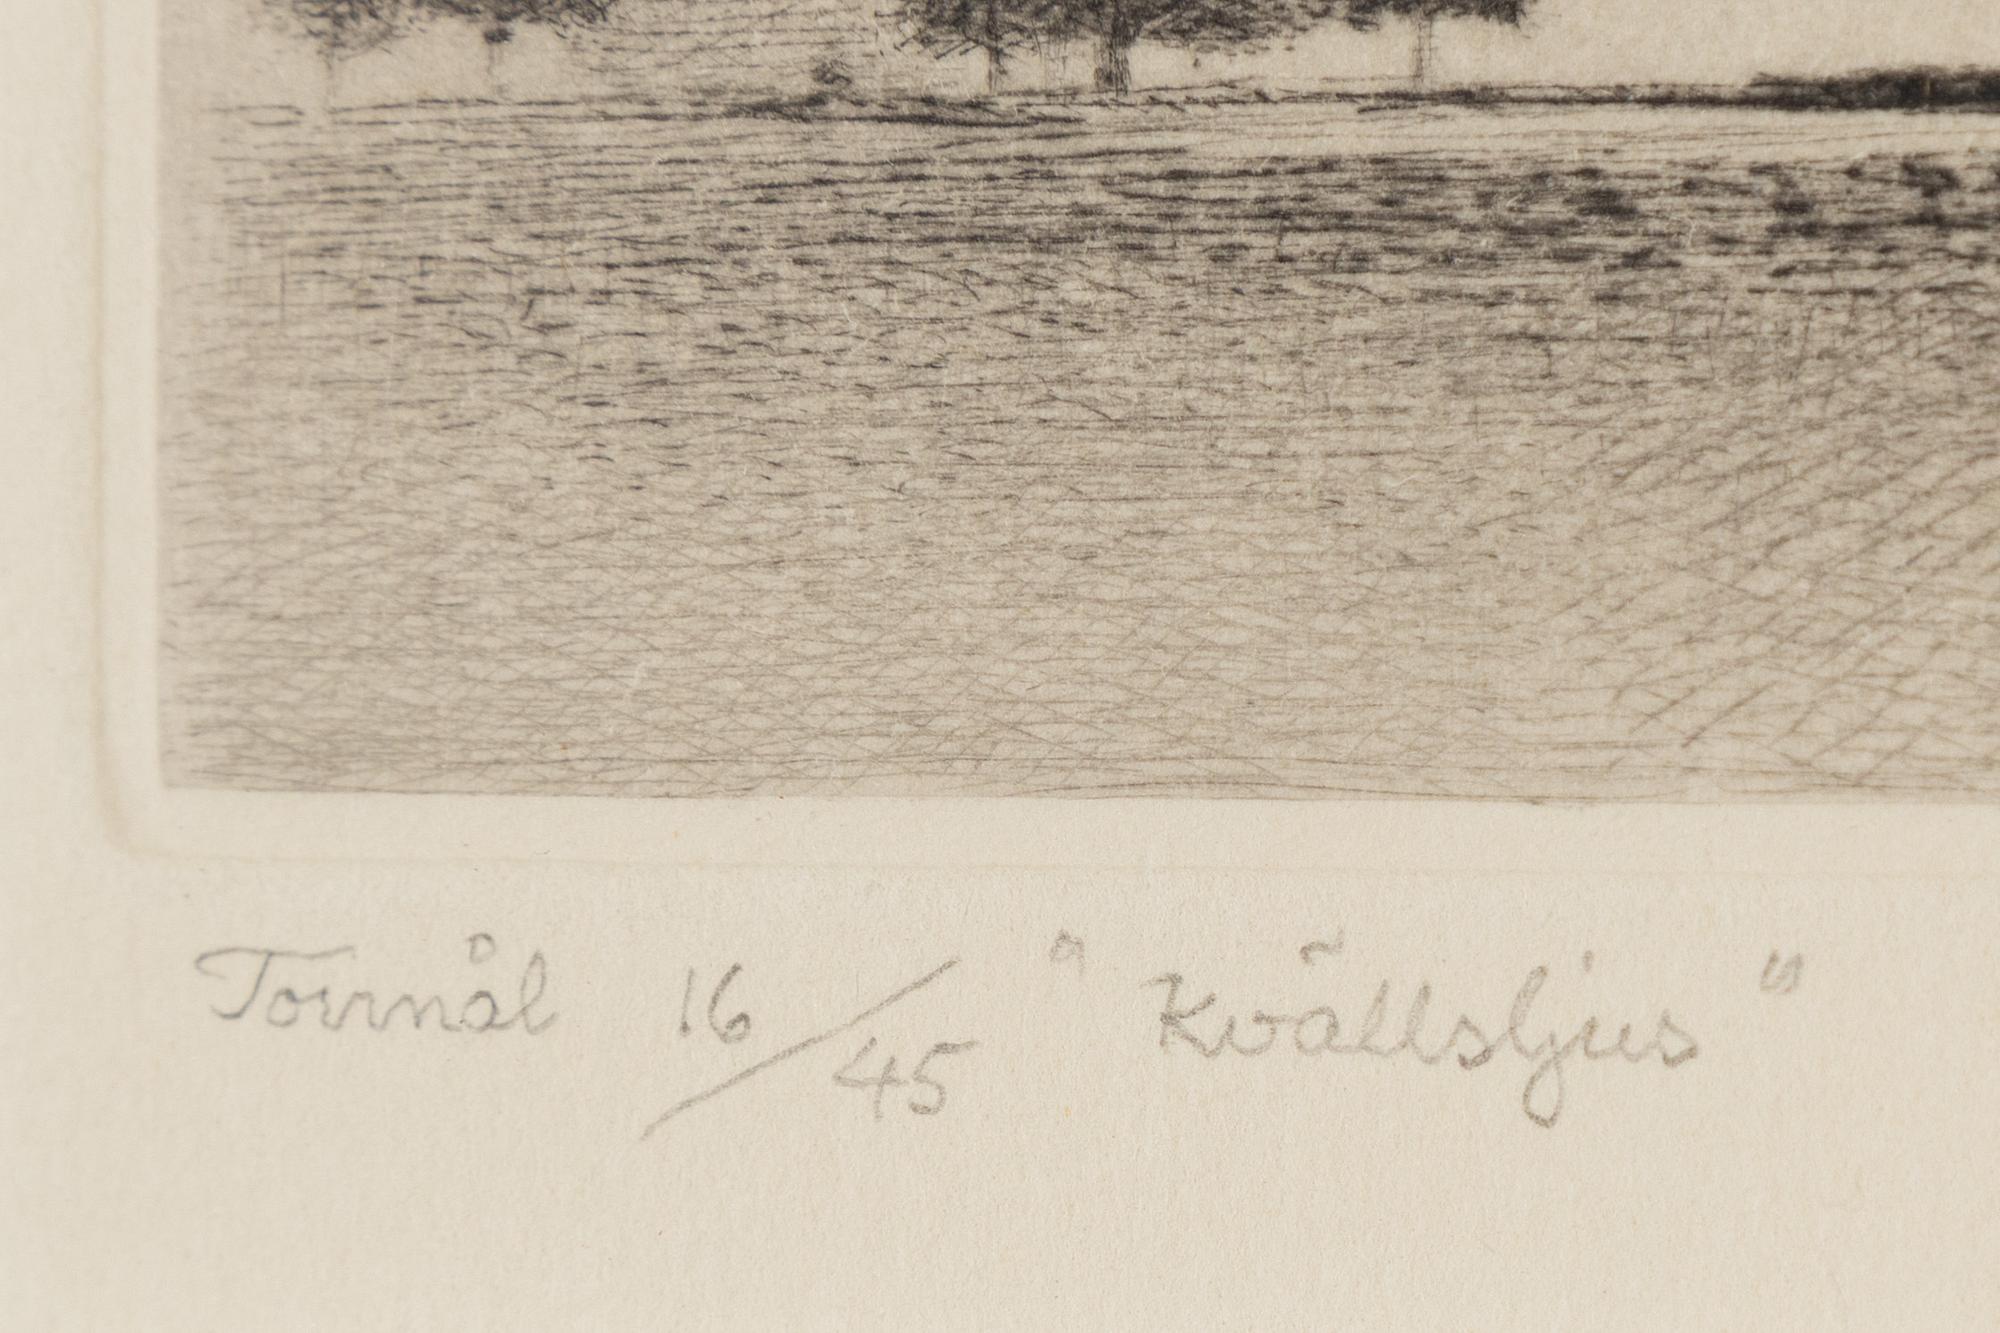 Torrnål 16/45 "Kvällsljus"